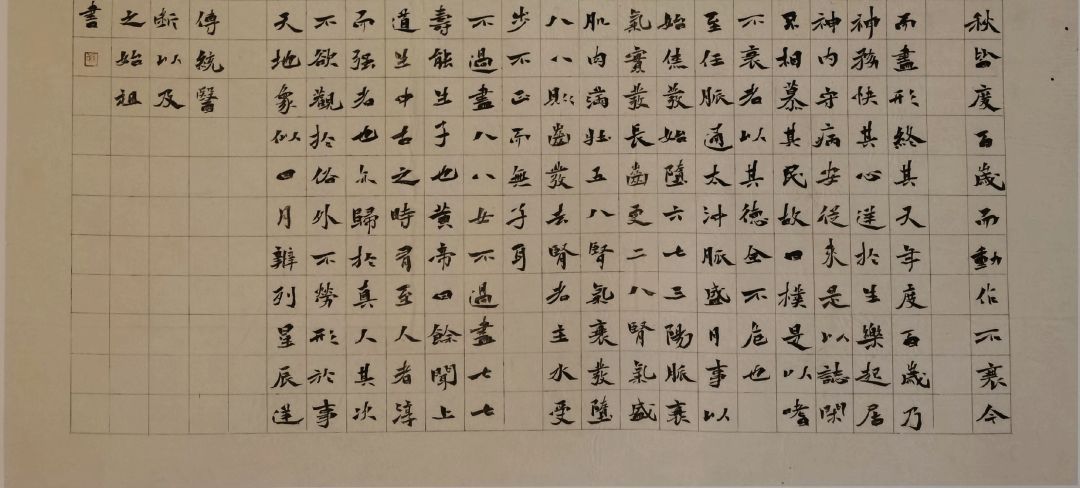 秋皆度百歲而動作不衰今
而盡形終其天年度百歲乃
神務快其心逆於生樂起居
神内守病安從來是以誌閑
相慕其民故曰樸是以嗜
不衰者以其德全不危也
至任脈通太沖脈盛月事以
始焦發始墮六七三陽脈衰
氣實發長齒更二八腎氣盛
肌肉滿壯五八腎氣衰發墮
八八則齒發去腎者主水受
步不正而無子耳
不過盡八八女不過盡七七
壽能生子也黃帝曰餘聞上
道生中古之時有至人者淳
而強者也亦歸於真人其次
不欲觀於俗外不勞形於事
天地象似日月辨列星辰逆
傳統醫
斷以及
之始祖
書